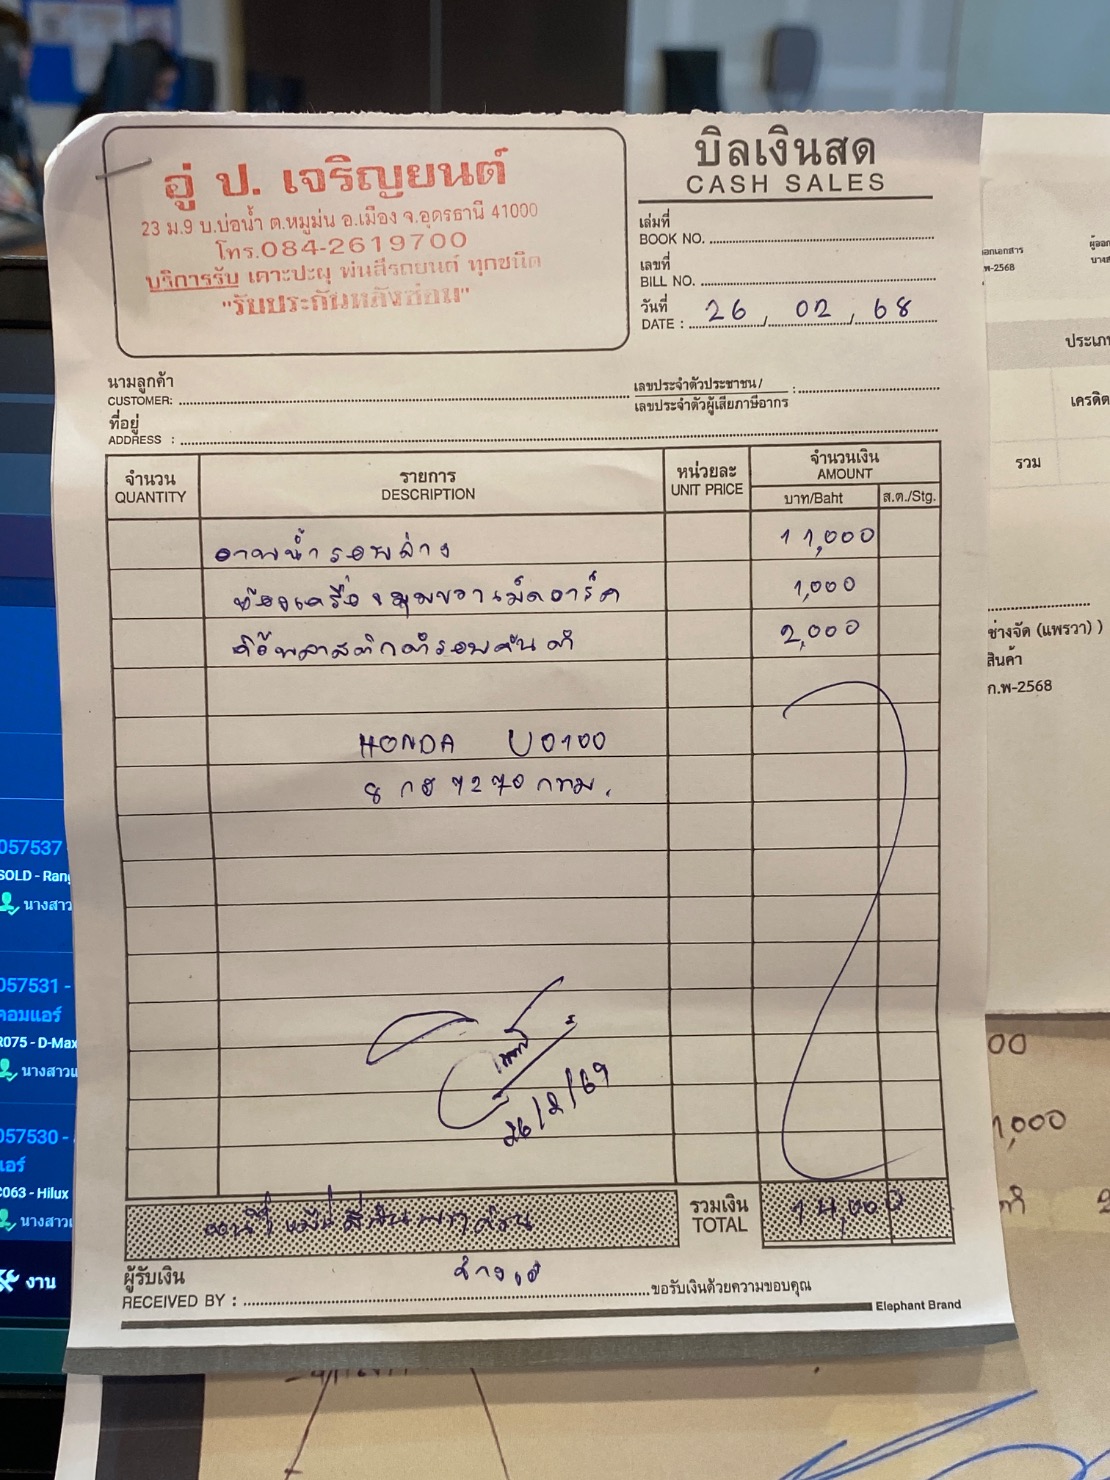 อู่ ป. เจริญยนต์
23 ม.9 บ.บ่อน้ำ ต.หมูม่น อ.เมือง จ.อุดรธานี 41000
โทร.084-2619700
บริการรับ เคาะปะผุ พ่นสีรถยนต์ ทุกชนิด
"รับประกันหลังซ่อม"
บิลเงินสด
CASH SALES
เล่มที่
BOOK NO.
เลขที่
BILL NO.
วันที่
DATE : 26 / 02 / 68
นามลูกค้า
CUSTOMER:
เลขประจำตัวประชาชน /
เลขประจำตัวผู้เสียภาษีอากร :
ที่อยู่
ADDRESS :
จำนวน
QUANTITY
รายการ
DESCRIPTION
หน่วยละ
UNIT PRICE
จำนวนเงิน
AMOUNT
บาท/Baht
ส.ต./Stg.
รอบล่าง 11,000
1,000
รอบคัน ดำ 2,000
HONDA U0100
8 กธ 7270 กทม.
26/2/69
รวมเงิน
TOTAL
14,000
ผู้รับเงิน
RECEIVED BY :
ขอรับเงินด้วยความขอบคุณ
Elephant Brand
057537
SOLD - Rang
นางสาว
057531 -
คอมแอร์
R075 - D-Max
057530 -
แอร์
C063 - Hilux
งาน
ประเภท
เครดิต
รวม
ช่างจัด (แพรวา) )
สินค้า
ก.พ-2568
00
1,000